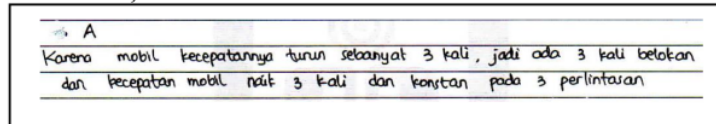 A
Karena mobil kecepatannya turun sebanyak 3 kali, jadi ada 3 kali belokan
dan kecepatan mobil naik 3 kali dan konstan pada 3 perlintasan